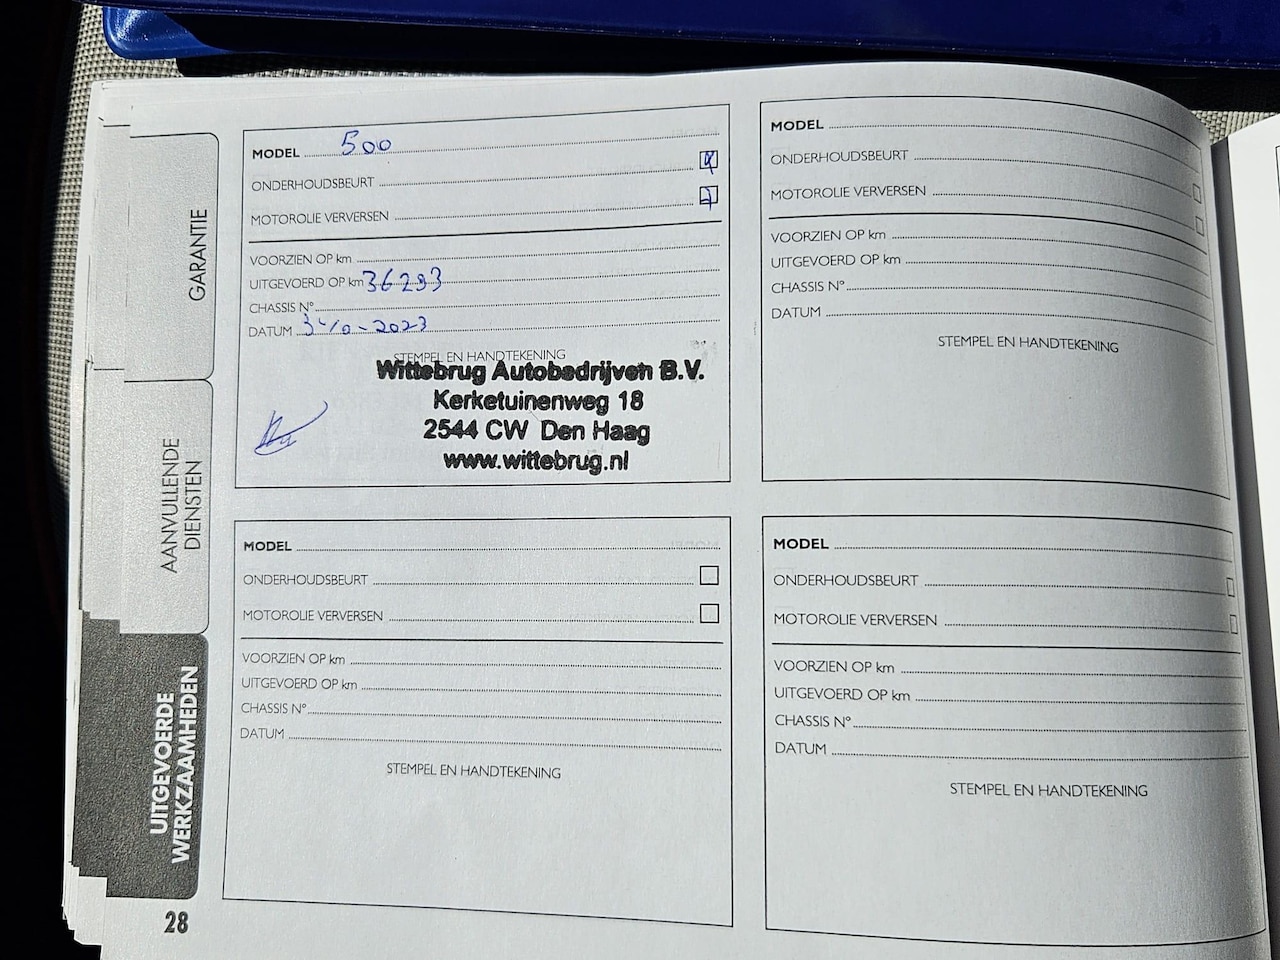 GARANTIE
AANVULLENDE
DIENSTEN
UITGEVOERDE
WERKZAAMHEDEN
MODEL 500
ONDERHOUDSBEURT
MOTOROLIE VERVERSEN
VOORZIEN OP km
UITGEVOERD OP km 36293
CHASSIS N°
DATUM 2023
STEMPEL EN HANDTEKENING
Wittebrug Autobedrijven B.V.
Kerketuinenweg 18
2544 CW Den Haag
www.wittebrug.nl
MODEL
ONDERHOUDSBEURT
MOTOROLIE VERVERSEN
VOORZIEN OP km
UITGEVOERD OP km
CHASSIS N°
DATUM
STEMPEL EN HANDTEKENING
MODEL
ONDERHOUDSBEURT
MOTOROLIE VERVERSEN
VOORZIEN OP km
UITGEVOERD OP km
CHASSIS N°
DATUM
STEMPEL EN HANDTEKENING
MODEL
ONDERHOUDSBEURT
MOTOROLIE VERVERSEN
VOORZIEN OP km
UITGEVOERD OP km
CHASSIS N°
DATUM
STEMPEL EN HANDTEKENING
28